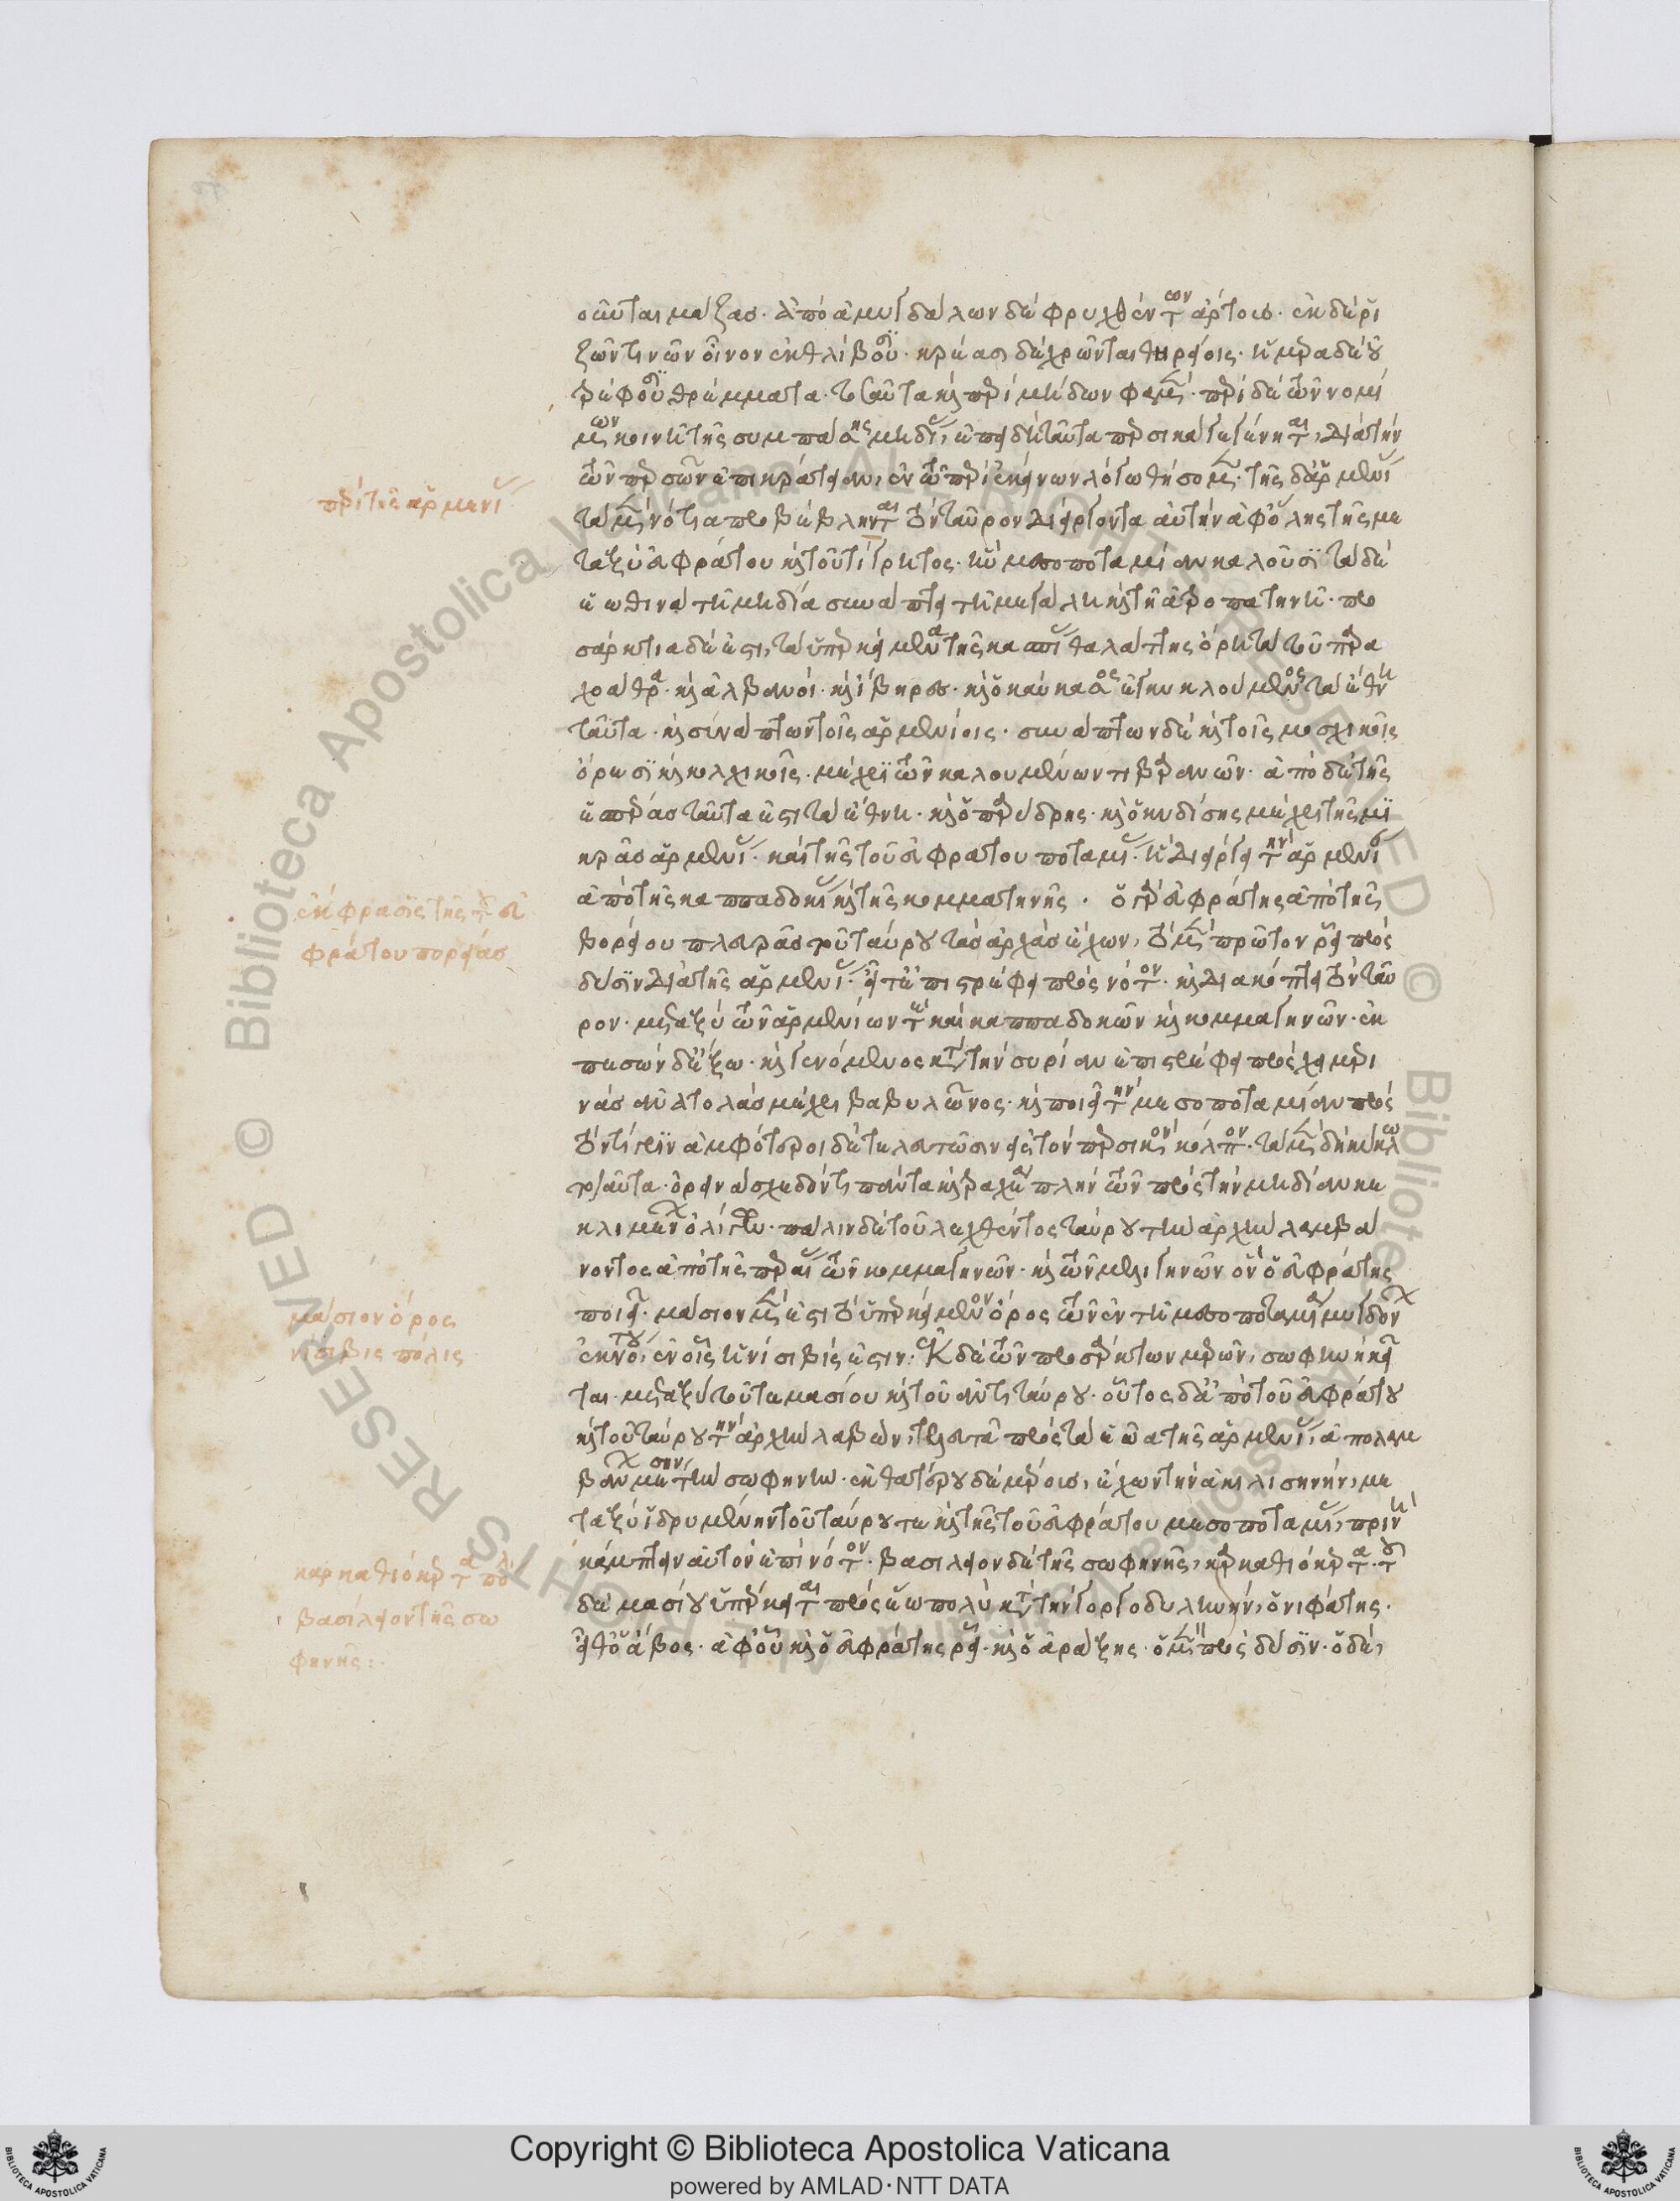 οῦνται μάζας· ἀπὸ ἀμυγδάλων δὲ φρυχθέντων ἄρτοις· ἐκ δὲ ῥι
ζῶν τινῶν οἶνον ἐκθλίβουσι· κρέασι δὲ χρῶνται θηρείοις· ἥμερα δὲ οὐ
τρέφουσι θρέμματα· τοσαῦτα καὶ περὶ μήδων φαμέν· περὶ δὲ τῶν νομί
μων κοινῇ τῆς συμπάσης μηδίας, ἐπειδὴ ταῦτα περσικὰ γεγένηται, διὰ τὴν
τῶν περσῶν ἐπικράτειαν, ἐν τῶ περὶ ἐκείνων λόγω θήσομεν· τῆς δ' ἀρμενίας
τὰ μὲν νότια προβέβληται τὸν ταῦρον διείργοντα αὐτὴν ἀφ' ὅλης τῆς με
ταξὺ εὐφράτου καὶ τοῦ τίγρητος· ἣν μεσοποταμίαν καλοῦσι τὰ δὲ
ἑωθινὰ τῆ μηδία συνάπτει τῆ μεγάλη καὶ τῆ ἀτροπατηνῆ· προ
σάρκτια δέ ἐστι, τὰ ὑπερκείμενα τῆς κασπίας θαλάττης ὄρη τὰ τοῦ παρα
χοάθρα· καὶ ἀλβανοί· καὶ ἴβηρες· καὶ ὁ καύκασος ἐγκυκλούμενος τὰ ἔθνη
ταῦτα· καὶ συνάπτων τοῖς ἀρμενίοις· συνάπτων δὲ καὶ τοῖς μοσχικοῖς
ὄρεσι καὶ κολχικοῖς· μέχρι τῶν καλουμένων τιβρανῶν· ἀπὸ δὲ τῆς
ἑσπέρας ταῦτα ἐστὶ τὰ ἔθνη· καὶ ὁ παρυάδρης· καὶ ὁ σκυδίσης μέχρι τῆς μι
κρᾶς ἀρμενίας· καὶ τῆς τοῦ εὐφράτου ποταμίας· ἣ διείργει τὴν ἀρμενίαν
ἀπὸ τῆς καππαδοκίας καὶ τῆς κομμαγηνῆς· ὁ γὰρ εὐφράτης ἀπὸ τῆς
βορείου πλευρᾶς τοῦ ταύρου τὰς ἀρχὰς ἔχων, τὸ μὲν πρῶτον ῥεῖ πρὸς
δύσιν διὰ τῆς ἀρμενίας· εἶτ' ἐπιστρέφει πρὸς νότον· καὶ διακόπτει τὸν ταῦ
ρον· μεταξὺ τῶν ἀρμενίων τε καὶ καππαδοκῶν καὶ κομμαγηνῶν· ἐκ
πεσὼν δ' ἔξω· καὶ γενόμενος κατὰ τὴν συρίαν ἐπιστρέφει πρὸς χειμερι
νὰς ἀνατολὰς μέχρι βαβυλῶνος· καὶ ποιεῖ τὴν μεσοποταμίαν πρὸς
τὸν τίγριν ἀμφότεροι δὲ τελευτῶσιν εἰς τὸν περσικὸν κόλπον· τὰ μὲν δὴ κύκλω
τοιαῦτα· ὀρεινὰ σχεδόν τι πάντα καὶ τραχέα πλὴν τῶν πρὸς τὴν μηδίαν κε
κλιμένων ὀλίγων· πάλιν δὲ τοῦ λεχθέντος ταύρου τὴν ἀρχὴν λαμβά
νοντος ἀπὸ τῆς περαίας τῶν κομμαγηνῶν· καὶ τῶν μελιτηνῶν ἣν ὁ εὐφράτης
ποιεῖ· μάσιον μέν ἐστι τὸ ὑπερκείμενον ὄρος τῶν ἐν τῆ μεσοποταμία μυγδόνων
ἐκ νότου, ἐν οἷς ἡ νίσιβίς ἐστιν: ἐκ δὲ τῶν προσάρκτων μερῶν, σωφηνὴ κεῖ
ται· μεταξὺ τοῦ τε μασίου καὶ τοῦ ἀντιταύρου· οὗτος δ' ἀπὸ τοῦ εὐφράτου
καὶ τοῦ ταύρου τὴν ἀρχὴν λαβών, τελευτᾶ πρὸς τὰ ἑῶα τῆς ἀρμενίας, ἀπολαμ
βάνων μέσην τὴν σωφηνὴν· ἐκ θατέρου δὲ μέρους, ἔχων τὴν ἀκιλισηνήν, με
ταξὺ ἱδρυμένην τοῦ ταύρου τε καὶ τῆς τοῦ εὐφράτου μεσοποταμίας, πρὶν ἢ
κάμπτειν αὐτὸν ἐπὶ νότον· βασίλειον δὲ τῆς σωφηνῆς, καρκαθιόκερτα· τοῦ
δὲ μασίου ὑπέρκειται πρὸς ἕω πολὺ κατὰ τὴν γοργοδυληνήν, ὁ νιφάτης·
εἶθ' ὁ ἄβος· ἀφ' οὗ καὶ ὁ εὐφράτης ῥεῖ· καὶ ὁ ἀράξης· ὁ μὲν πρὸς δύσιν· ὁ δὲ,
περὶ τῆς ἀρμενίας
ἔκφρασις τῆς τοῦ εὐ
φράτου πορείας
μάσιον ὄρος
νίσιβις πόλις
καρκαθιόκερτα πόλις
βασίλειον τῆς σω
φηνῆς:·
Copyright © Biblioteca Apostolica Vaticana
powered by AMLAD·NTT DATA